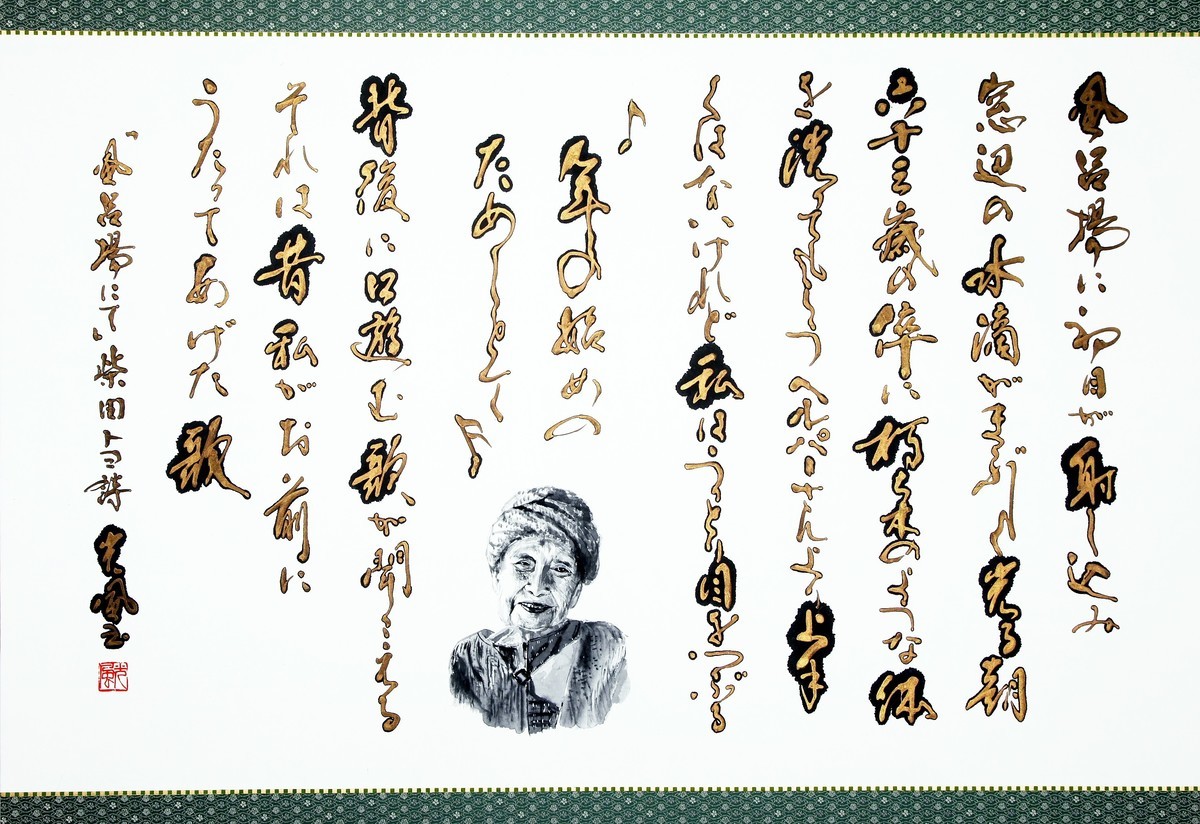 風呂場に初日が射し込み
窓辺の水滴がまぶしく光る朝
六十三歳の倅に朽ち木のような体
を洗ってもらうヘルパーさんより上手
くはないけれど私はうっとり目をつぶる
♪年の始めの
ためしとて♪
背後に口遊む歌が聞こえる
それは昔私がお前に
うたってあげた歌
「風呂場にて」柴田トヨ詩 光風書